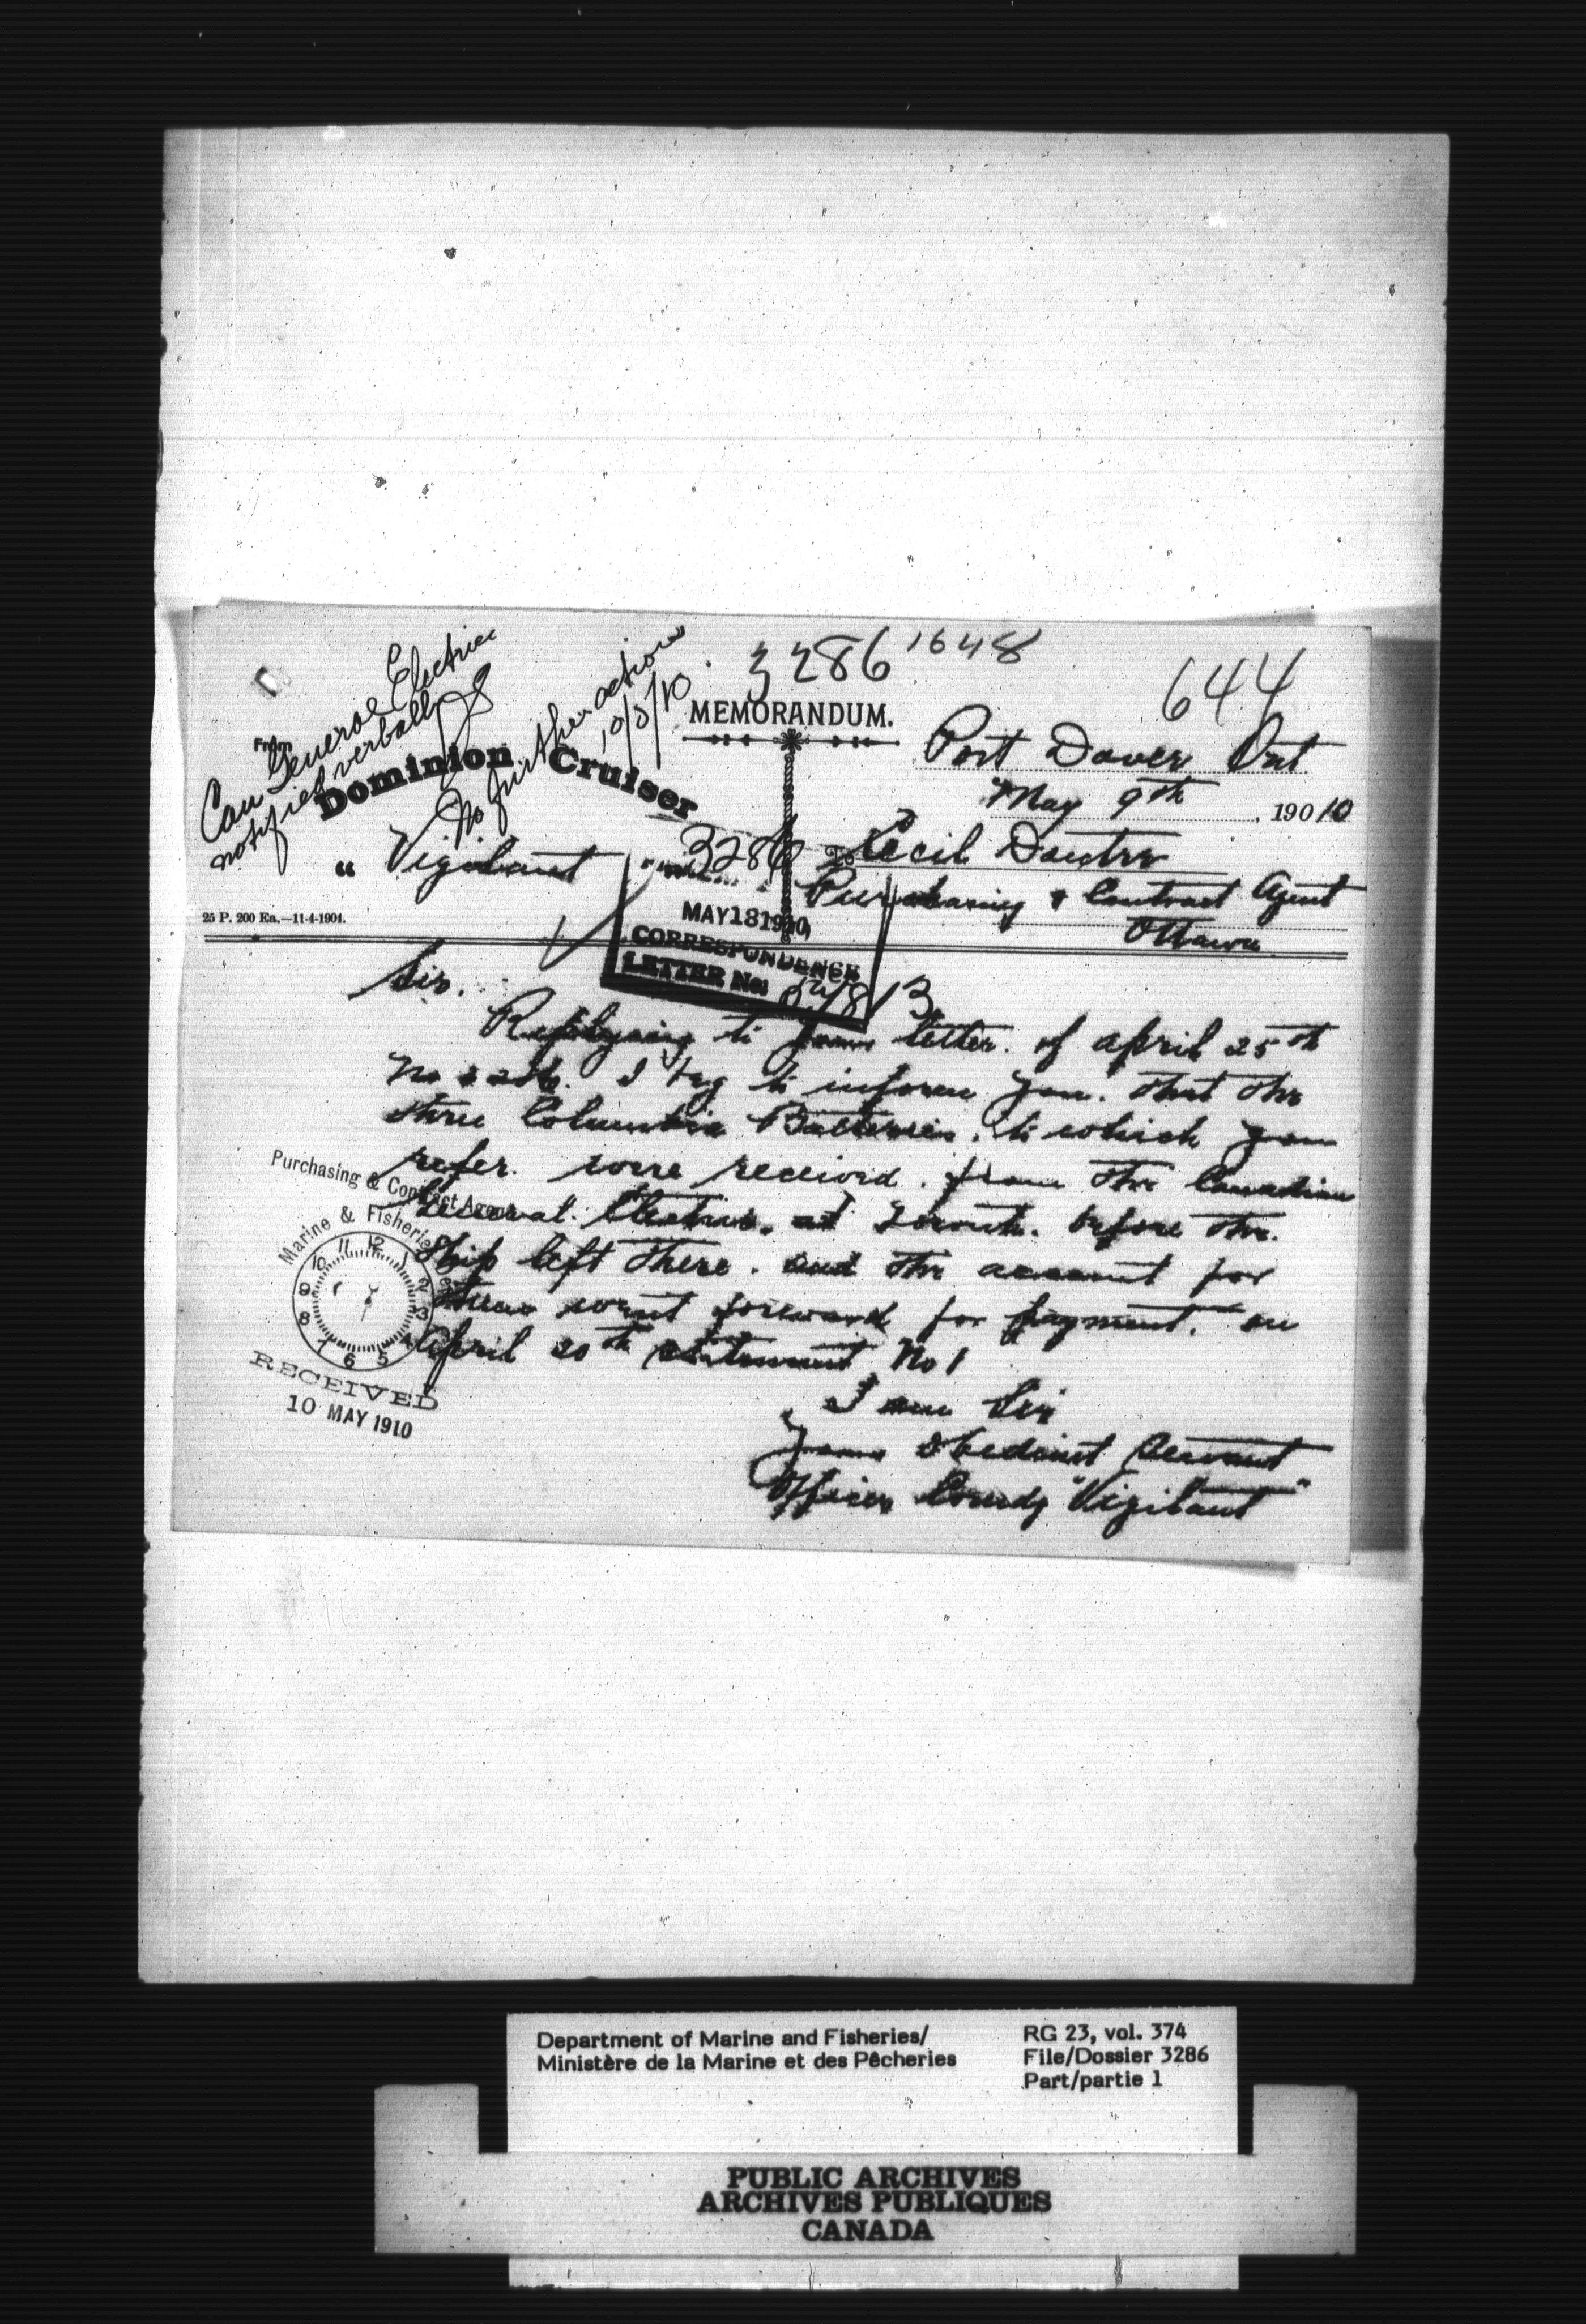 3286 1648
644
Can General Electric
notified verbally
No further action
10/5/10
MEMORANDUM.
From
Dominion Cruiser
" Vigilant
25 P. 200 Ea.—11-4-1904.
Port Dover Ont
May 9th, 19010
To Cecil Doutre
Purchasing & Contract Agent
Ottawa
3286
MAY 18 1910
CORRESPONDENCE
LETTER No.
Sir.
Replying to your letter. of April 25th
No 3286. I beg to inform you. that the
three Columbia Batteries. to which you
refer. were received. from the Canadian
General. Electric. at Toronto. before the.
Ship left there. and the account for
them went forward for payment. on
April 20th statement No 1
I am Sir
Your Obedient Servant
Officer Comdg "Vigilant"
Purchasing & Contract Agent
Marine & Fisheries
12 1 2 3 4 5 6 7 8 9 10 11
RECEIVED
10 MAY 1910
Department of Marine and Fisheries/
Ministère de la Marine et des Pêcheries
RG 23, vol. 374
File/Dossier 3286
Part/partie 1
PUBLIC ARCHIVES
ARCHIVES PUBLIQUES
CANADA